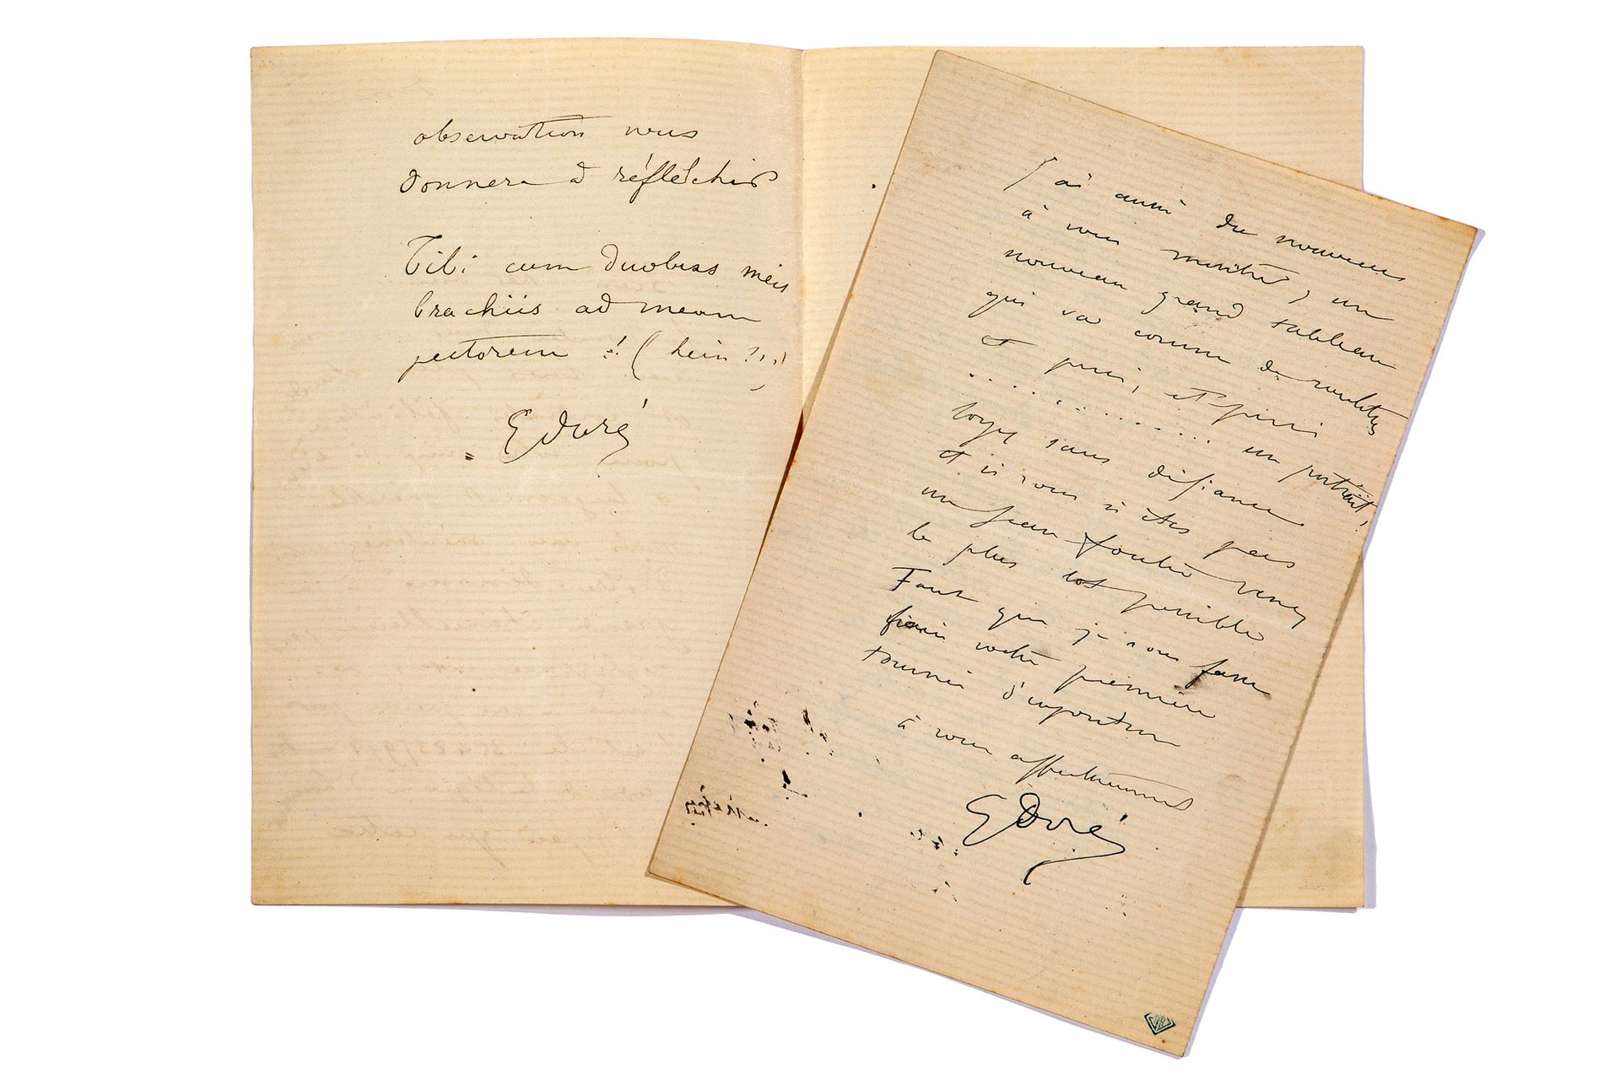 observation vous
donnera à réfléchir
Tibi cum duobus meis
brachiis ad meam
pectorem ! (hein ?!,)
G Doré
J'ai aussi du nouveau
à vous montrer, un
nouveau grand tableau
qui va comme de
et puis, et puis
. . . . . . . . . . . . . un portrait,
soyez sans défiance
et si vous n'êtes pas
un jean foutre venez
le plus tôt possible
Faut que je vous fasse
faire votre première
tournée d'
à vous affectueusement
G Doré